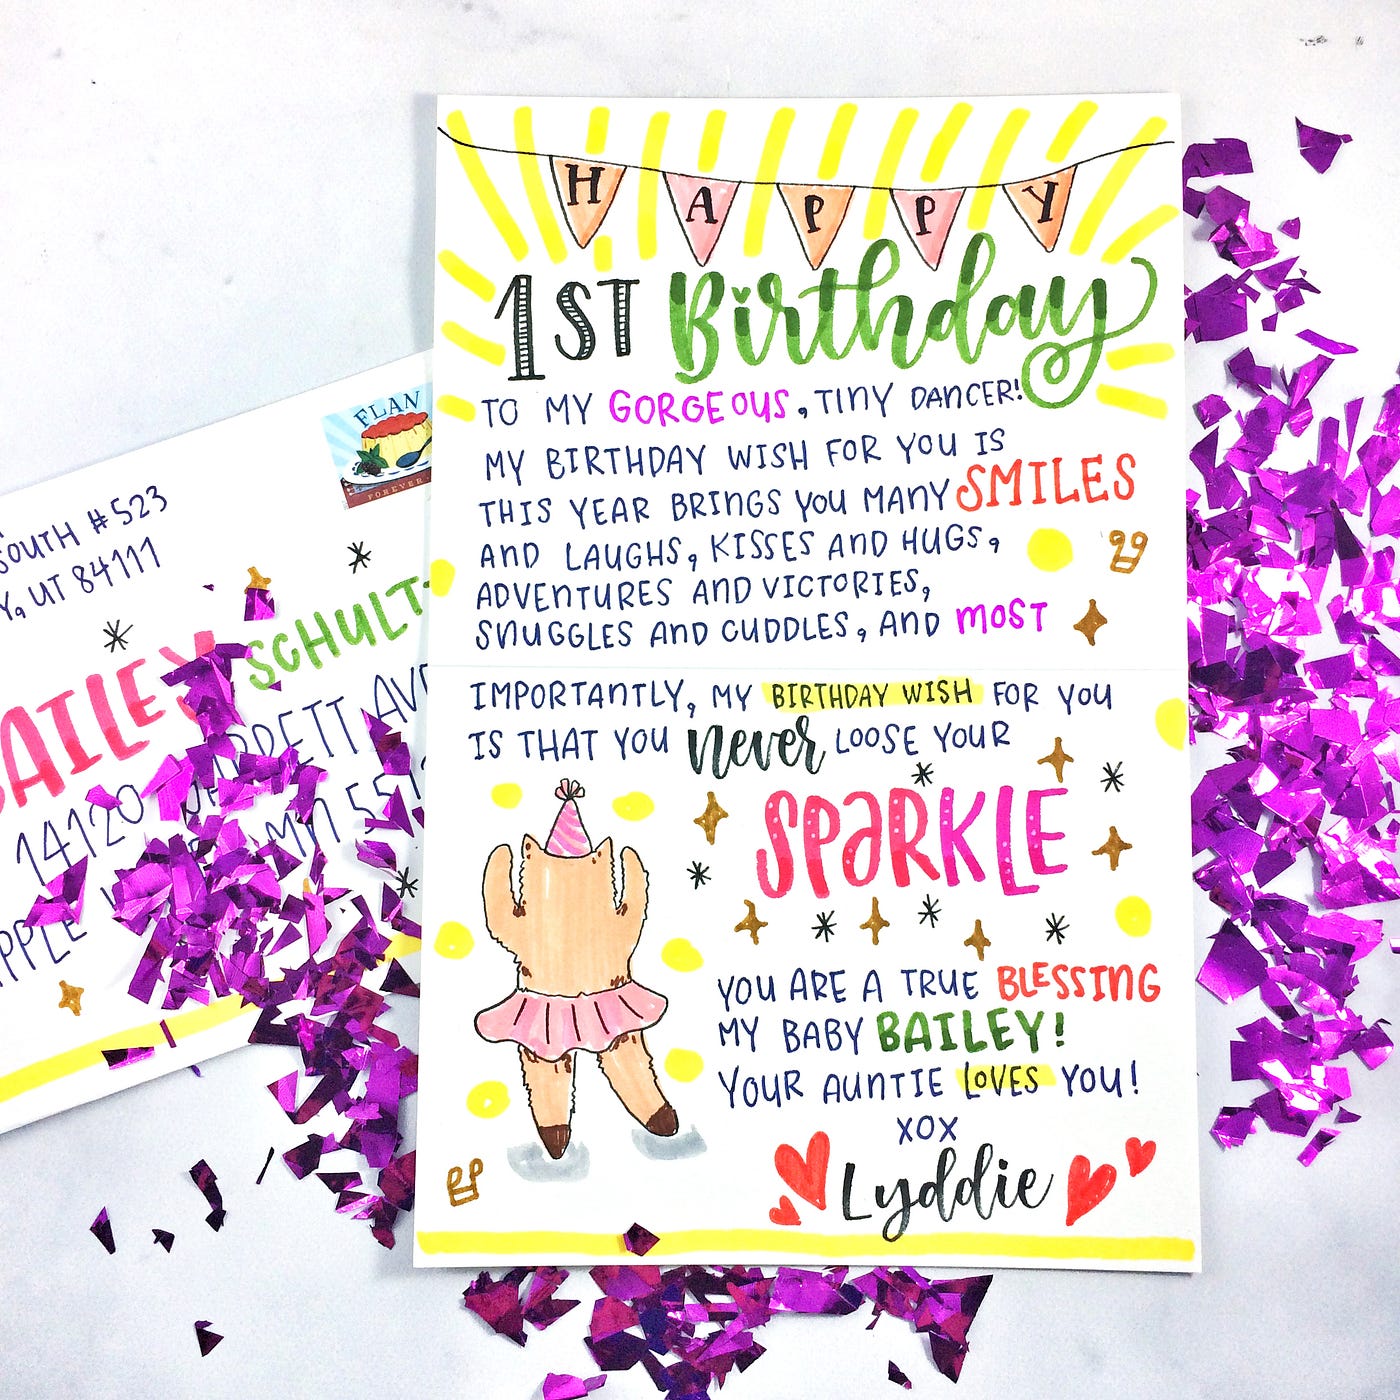 HAPPY
1ST Birthday
TO MY GORGEOUS, TINY DANCER!
MY BIRTHDAY WISH FOR YOU IS
THIS YEAR BRINGS YOU MANY SMILES
AND LAUGHS, KISSES AND HUGS,
ADVENTURES AND VICTORIES,
SNUGGLES AND CUDDLES, AND MOST
IMPORTANTLY, MY BIRTHDAY WISH FOR YOU
IS THAT YOU never LOOSE YOUR
SPARKLE
YOU ARE A TRUE BLESSING
MY BABY BAILEY!
YOUR AUNTIE LOVES YOU!
XOX
Lyddie
FLAN
FOREVER
SOUTH #523
Y, UT 84111
BAILEY SCHULT
14120 AV
MN 551
PPLE